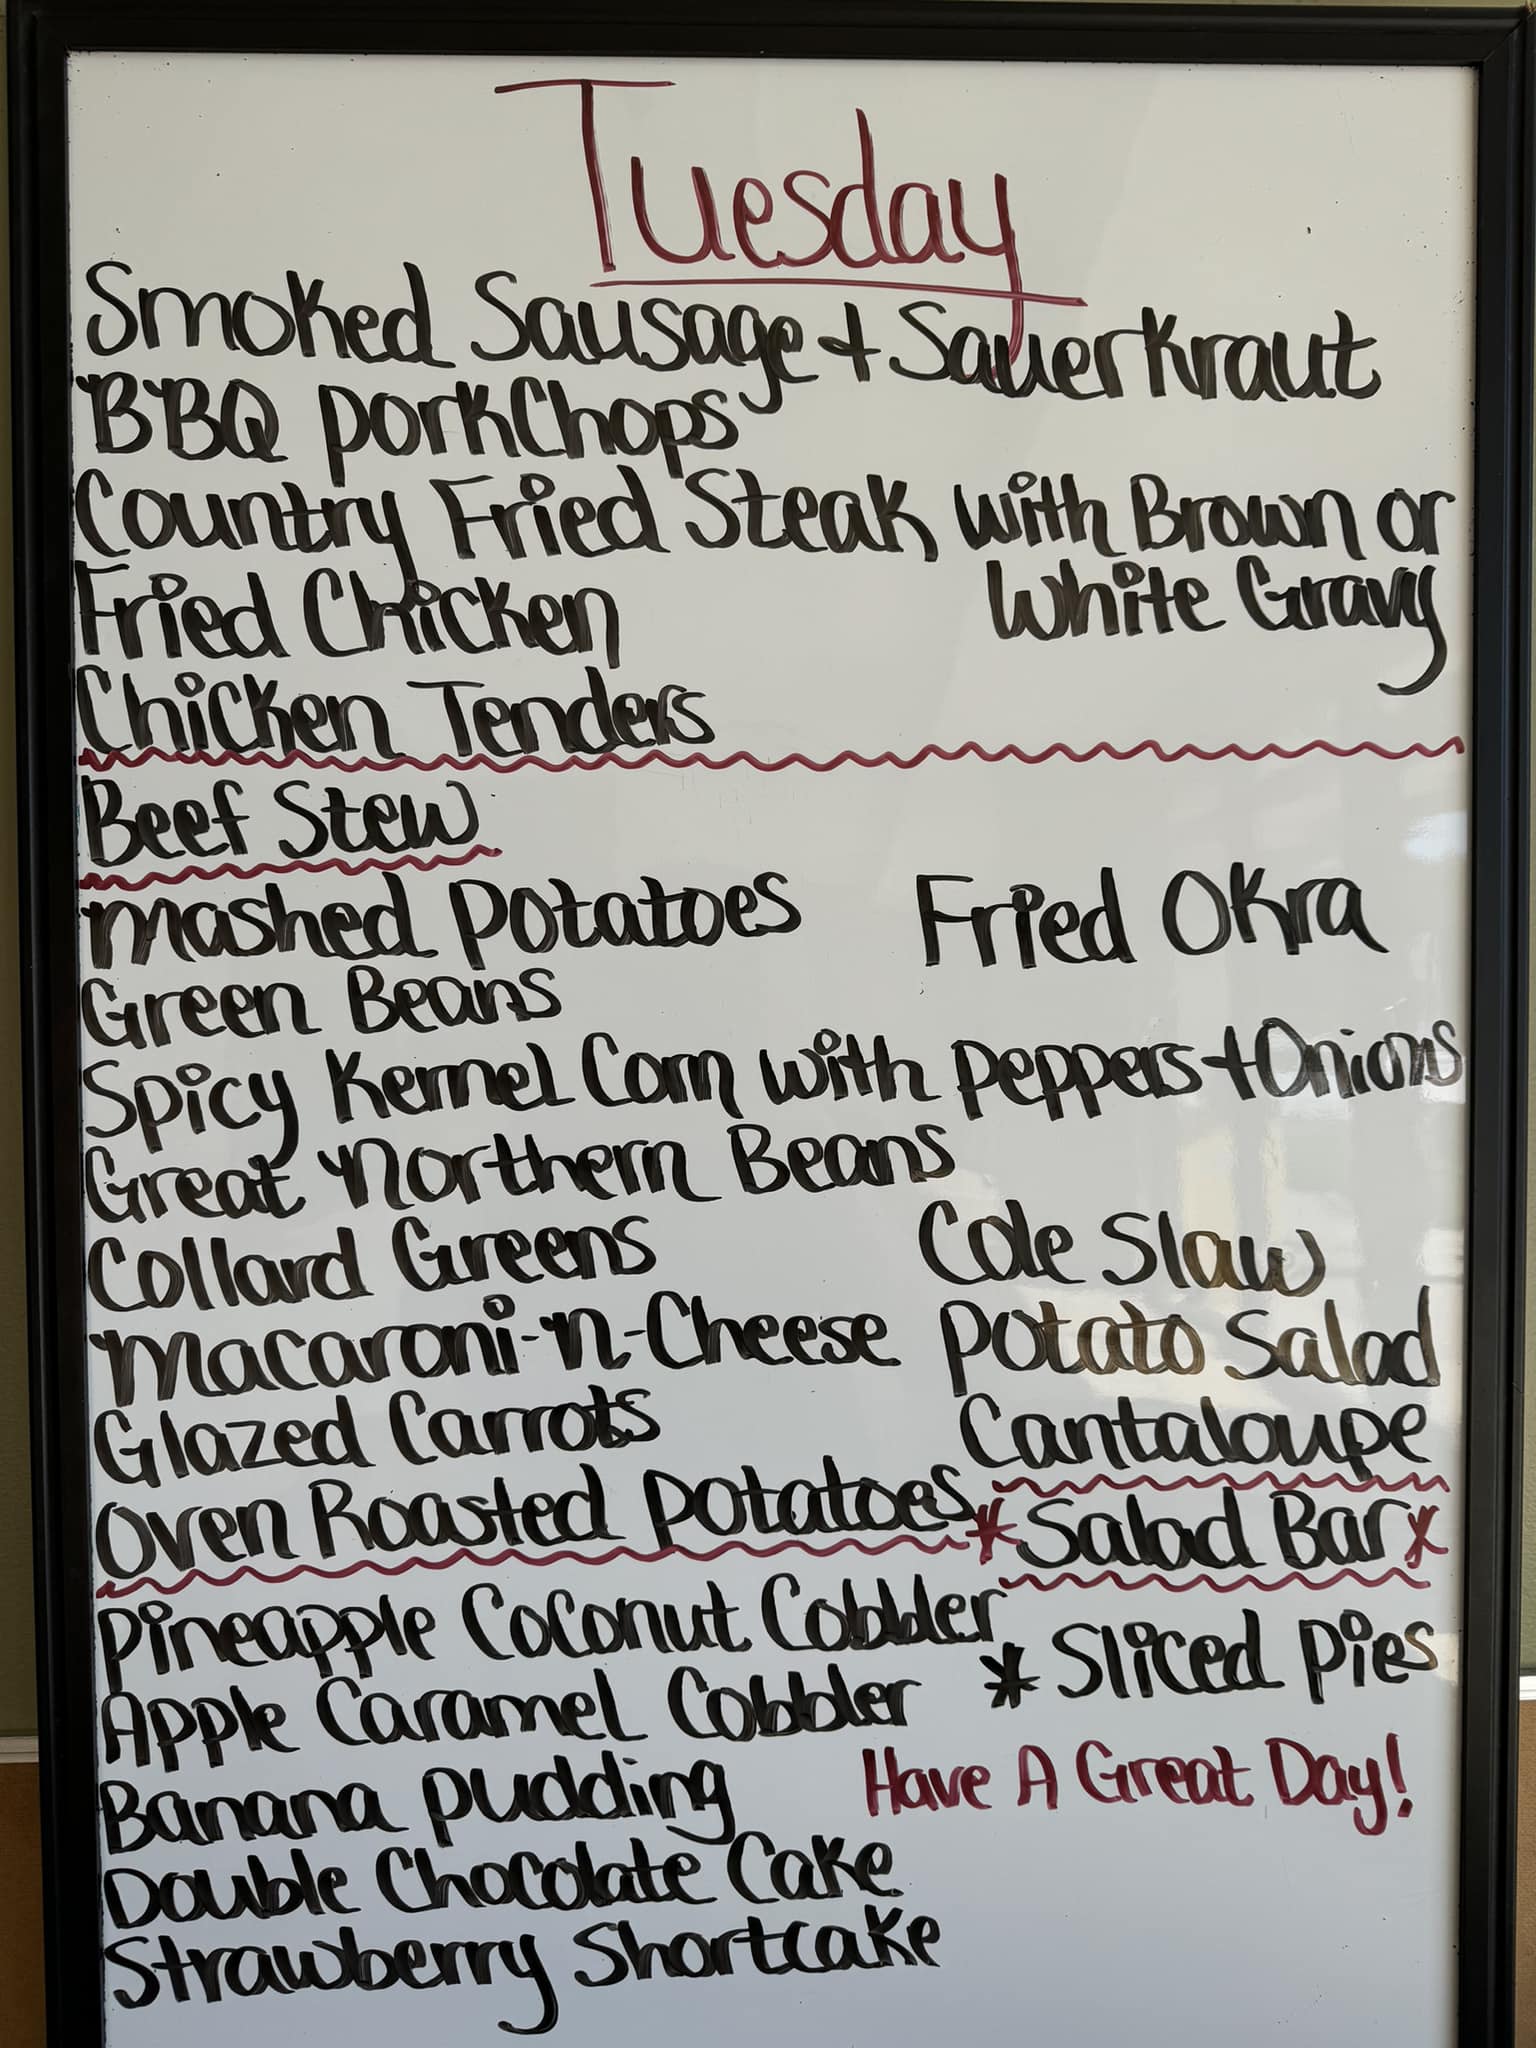 Tuesday
Smoked Sausage + Sauerkraut
BBQ PorkChops
Country Fried Steak with Brown or
White Gravy
Fried Chicken
Chicken Tenders
Beef Stew
Mashed Potatoes
Fried Okra
Green Beans
Spicy Kernel Corn with Peppers + Onions
Great Northern Beans
Collard Greens
Cole Slaw
Macaroni-N-Cheese
Potato Salad
Glazed Carrots
Cantaloupe
Oven Roasted Potatoes
*Salad Bar*
Pineapple Coconut Cobbler
* Sliced Pies
Apple Caramel Cobbler
Banana Pudding
Have A Great Day!
Double Chocolate Cake
Strawberry Shortcake